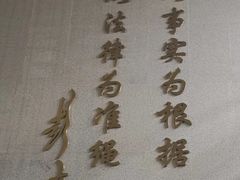 事实为根据
法律为准绳
彭